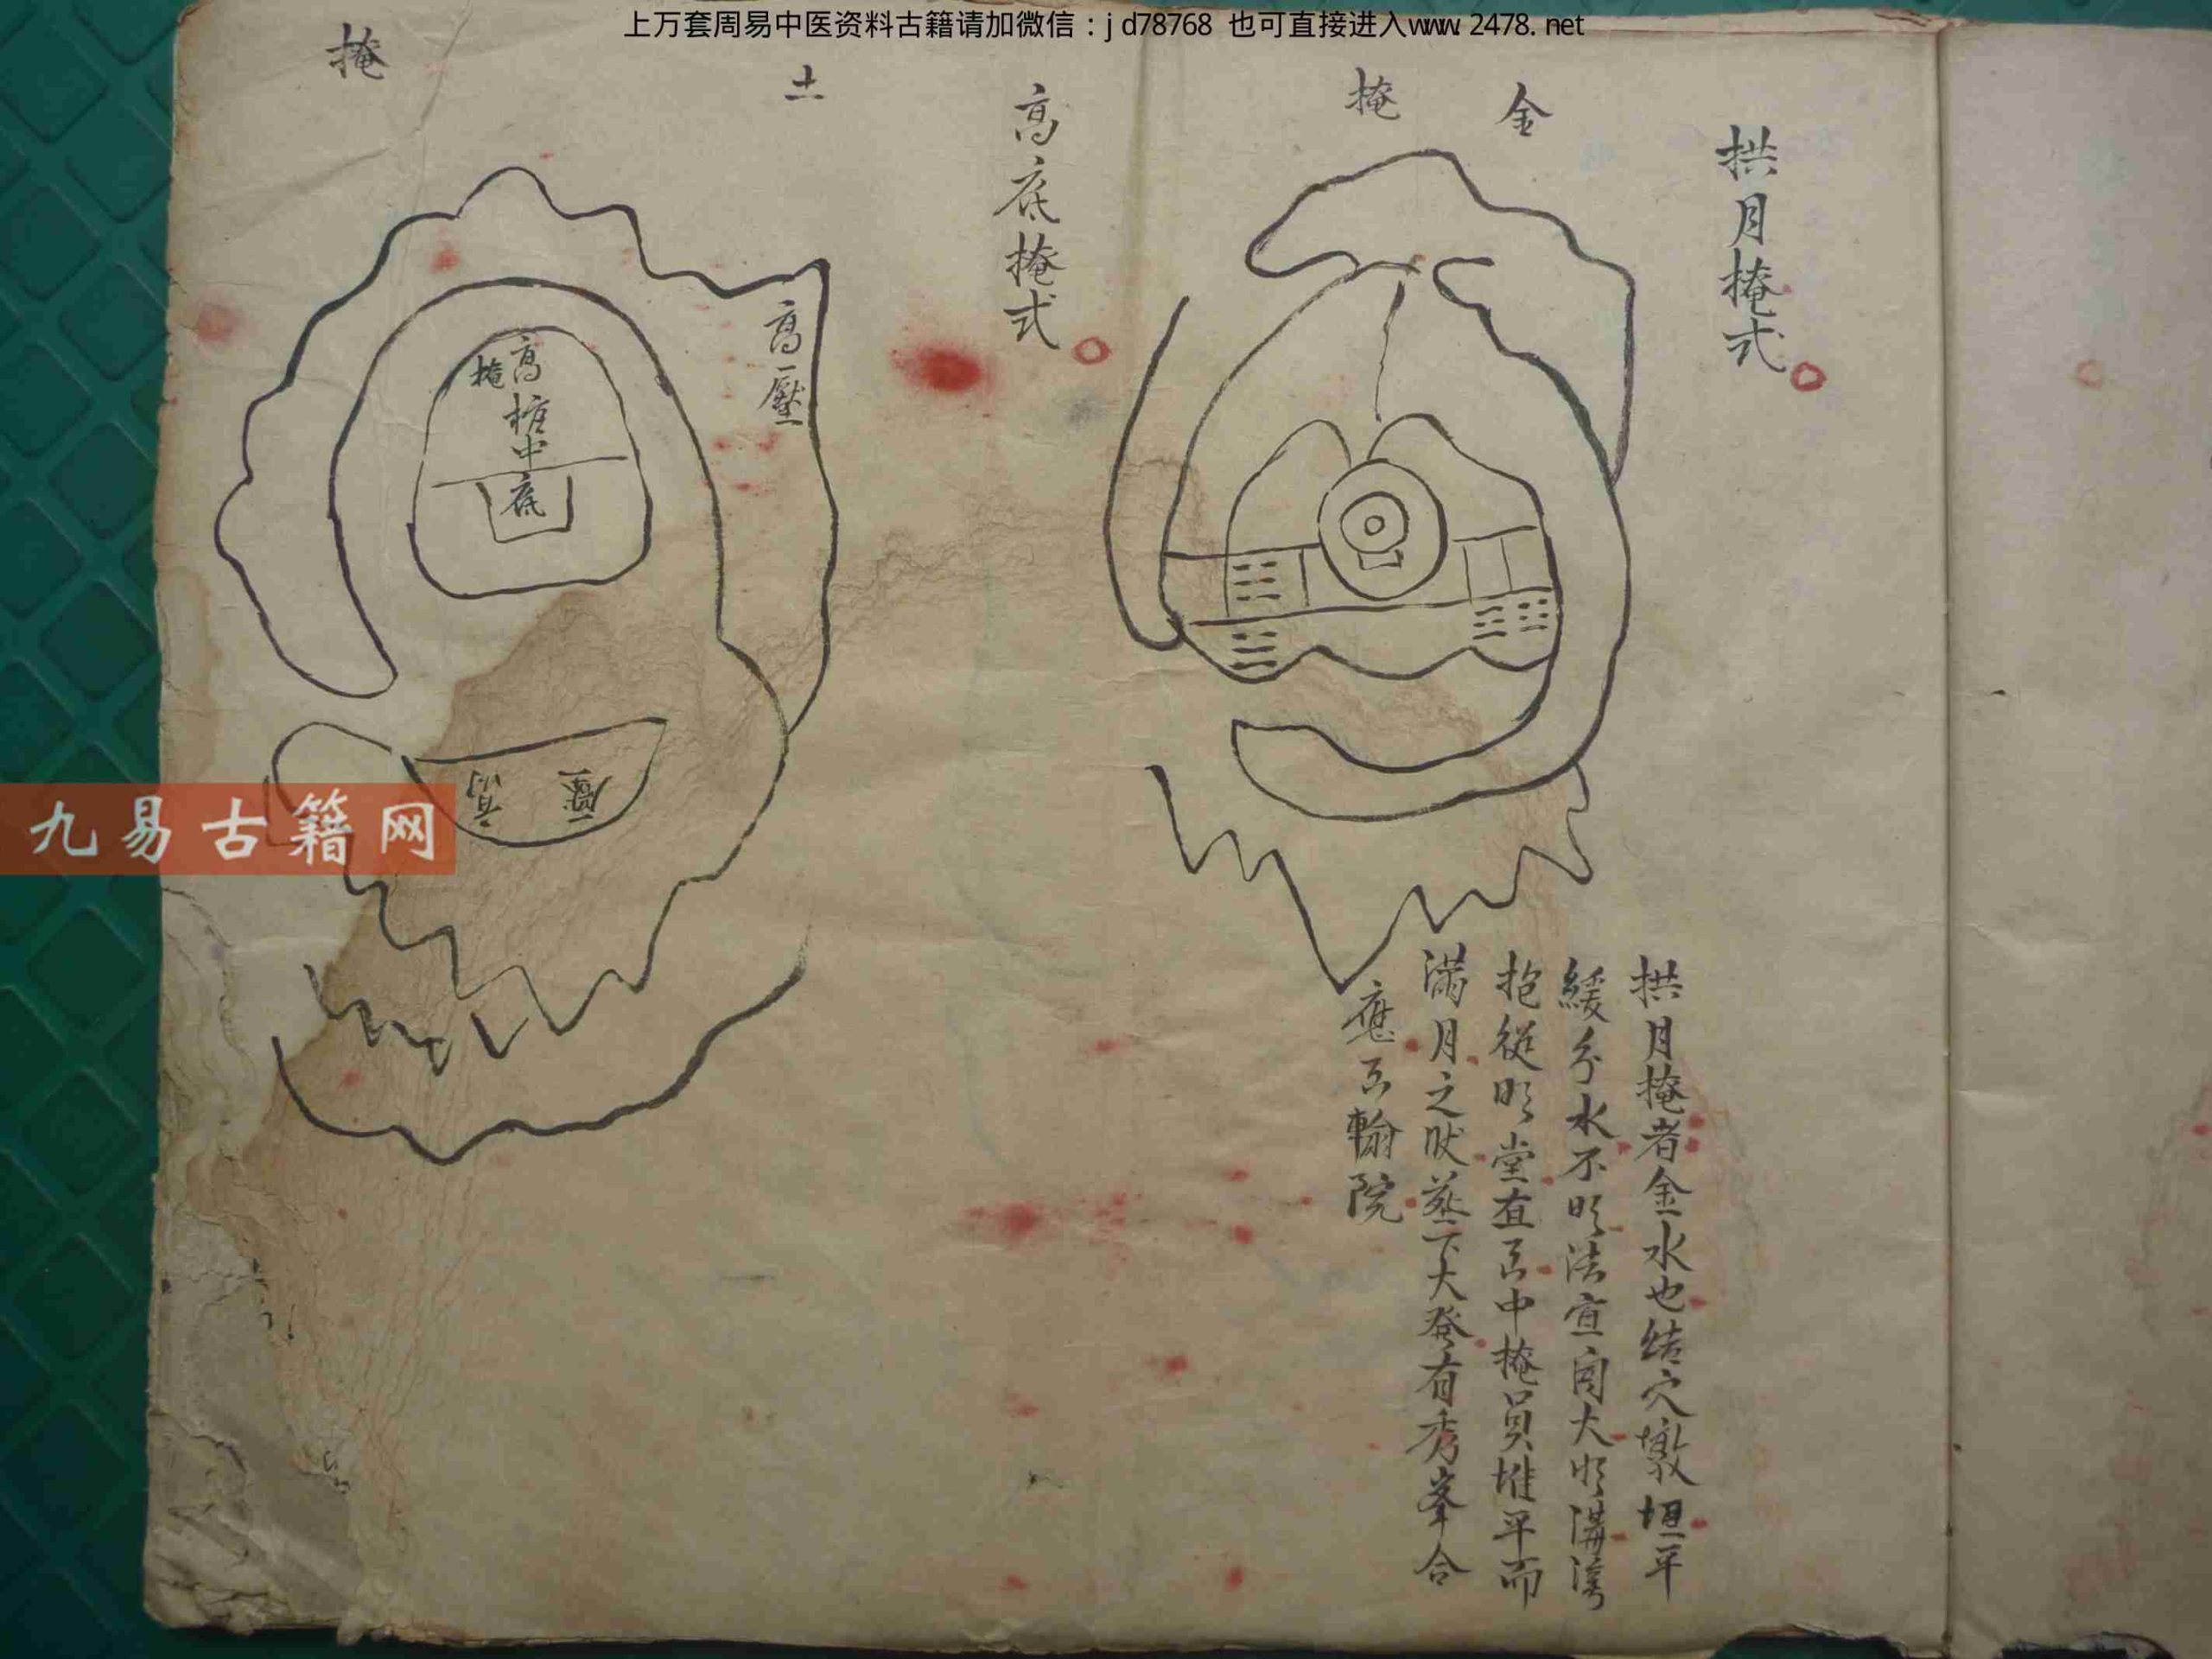 上万套周易中医资料古籍请加微信：jd78768 也可直接进入www.2478.net
拱月掩式
金
掩
拱月掩者金水也结穴墩坦平
緩分水不明法宜開大明溝湾
抱從明堂直公中掩員堆平而
满月之狀葬下大發有秀峯合
應公翰院
高底掩式
土
掩
高壓
高
掩
中
底
高壓
九易古籍网